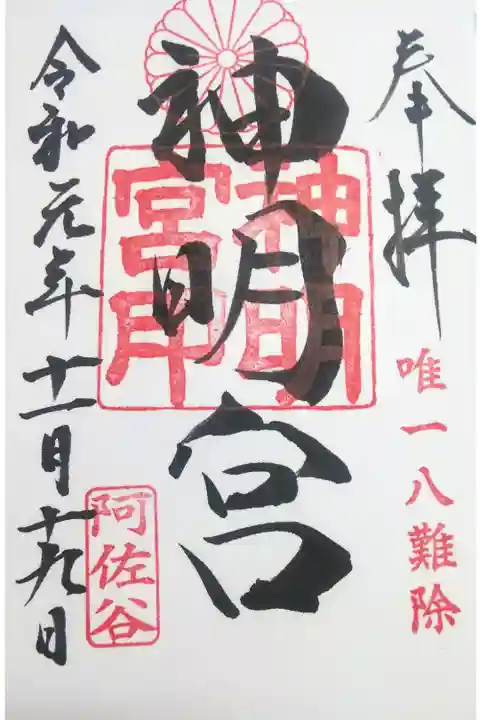 奉拝
唯一八難除
神明宮
神明宮印
令和元年十一月十九日
阿佐谷